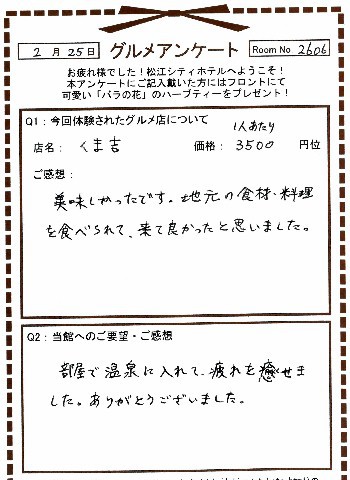 2月25日 グルメアンケート Room No 2606
お疲れ様でした！松江シティホテルへようこそ！
本アンケートにご記入戴いた方にはフロントにて
可愛い「バラの花」のハーブティーをプレゼント！
Q1：今回体験されたグルメ店について
1人あたり
店名： くま吉 価格： 3500 円位
ご感想：
美味しかったです。地元の食材・料理
を食べられて、来て良かったと思いました。
Q2：当館へのご要望・ご感想
部屋で温泉に入れて、疲れを癒せま
した。ありがとうございました。